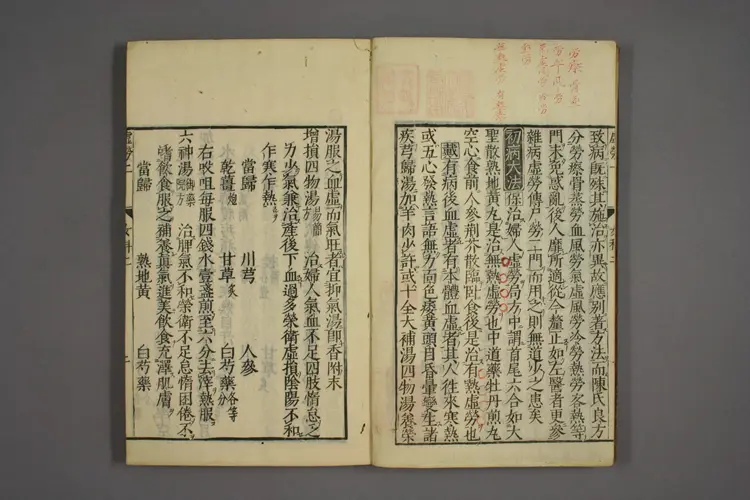 致病既殊其施治亦異故應別著方法而陳氏良方
分勞瘵骨蒸勞血風勞氣虛風勞冷勞熱勞客熱等
門未免惑亂後人靡所適從今釐正如左醫者更參
雜病虛勞傳尸勞二門而用之則無道少之患矣
初病大法保治婦人虛勞有方中謂首尾六合如大
聖散熟地黄丸是治無熱虛勞也中道藥牡丹煎丸
空心食前人參荆芥散臨卧食後是治有熱虛勞也
戴有病後血虛者有本體血虛者其人徃來寒熱
或五心發熱言語無力面色痿黄頭目昏暈變生諸
疾芎歸湯加羊肉少許或十全大補湯四物湯養榮
湯服之血虛而氣旺者宜抑氣湯即香附末
增損四物湯易簡方 治婦人氣血不足四肢惰怠乏
力少氣兼治產後下血過多榮衛虛損陰陽不和
作寒乍熱
當歸 川芎 人參
乾薑炮 甘草炙 白芍藥各等分
右㕮咀每服四錢水壹盞煎至六分去滓熱服
六神湯御藥院方 治脾氣不和榮衛不足怠惰困倦不
嗜飲食服之補養真氣進美飲食充澤肌膚
當歸 熟地黄 白芍藥
虛勞二
女科二